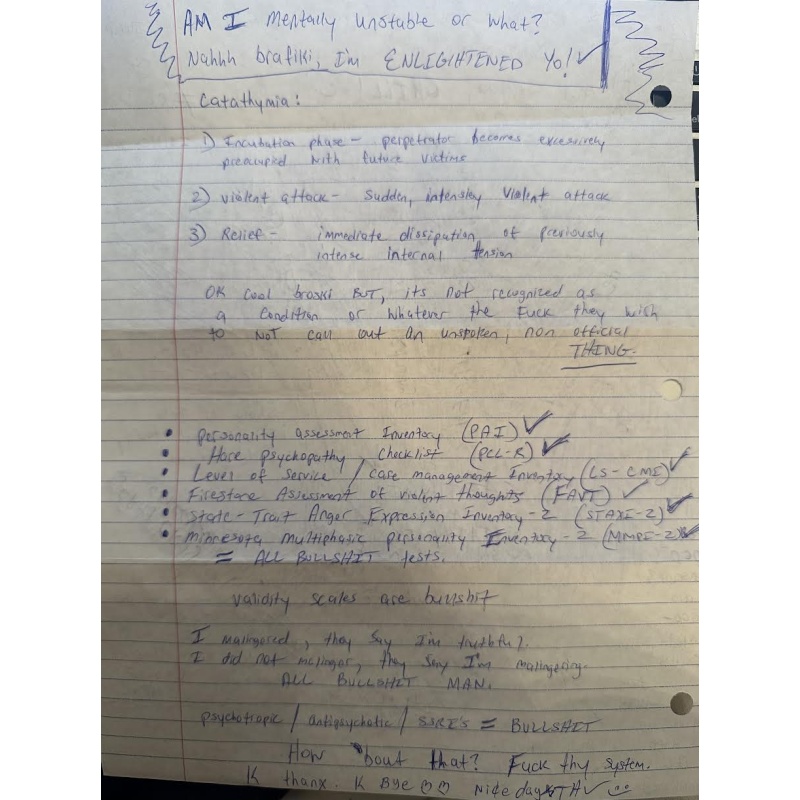 AM I Mentally Unstable or What?
Nahhh brafiki, I'm ENLIGHTENED Yo! ✓
Catathymia:
1) Incubation phase - perpetrator becomes excessively
preoccupied with future victims
2) violent attack - Sudden, intensley violent attack
3) Relief - immediate dissipation of previously
intense internal tension
OK Cool broski BUT, its not recognized as
a condition or whatever the Fuck they wish
to NOT call out an unspoken, non official
THING.
• personality assessment Inventory (PAI) ✓
• Hare psychopathy, checklist (PCL-R) ✓
• Level of Service / case management Inventory (LS-CMI) ✓
• Firestone Assessment of violent thoughts (FAVT) ✓
• State-Trait Anger Expression Inventory-2 (STAXI-2) ✓
• Minnesota multiphasic personality Inventory-2 (MMPI-2) ✓
= ALL BULLSHIT tests.
validity scales are bullshit
I malingered, they say I'm truthful.
I did not malinger, they say I'm malingering.
ALL BULLSHIT MAN.
psychotropic / antipsychotic / SSRI'S = BULLSHIT
How 'bout that? Fuck thy system.
K thanx. K Bye ♡♡ Nice day